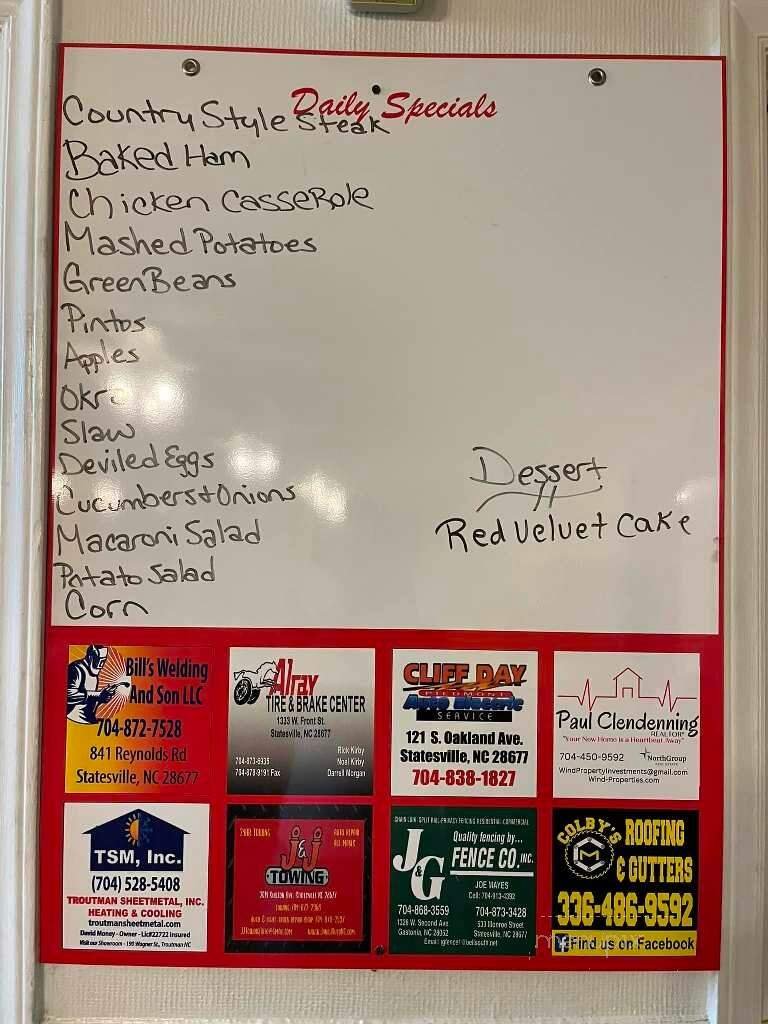 Daily Specials
Country Style Steak
Baked Ham
Chicken Casserole
Mashed Potatoes
Green Beans
Pintos
Apples
Okra
Slaw
Deviled Eggs
Cucumbers + Onions
Macaroni Salad
Potato Salad
Corn
Dessert
Red Velvet Cake
Bill's Welding
And Son LLC
704-872-7528
841 Reynolds Rd
Statesville, NC 28677
Alray
TIRE & BRAKE CENTER
1333 W. Front St.
Statesville, NC 28677
Rick Kirby
Noel Kirby
Darrell Morgan
Fax
CLIFF DAY
PIEDMONT
Auto Electric
SERVICE
121 S. Oakland Ave.
Statesville, NC 28677
704-838-1827
Paul Clendenning
REALTOR®
"Your New Home is a Heartbeat Away"
704-450-9592
NorthGroup
WindPropertyInvestments@gmail.com
Wind-Properties.com
TSM, Inc.
(704) 528-5408
TROUTMAN SHEETMETAL, INC.
HEATING & COOLING
troutmansheetmetal.com
David Money - Owner - Lic#22722 Insured
Visit our Showroom - 190 Wagner St., Troutman NC
24HR TOWING
AUTO REPAIR
ALL MAKES
J&J
TOWING
CHAIN LINK SPLIT RAIL PRIVACY FENCING RESIDENTIAL COMMERCIAL
J&G
Quality fencing by...
FENCE CO. INC.
JOE MAYES
Cell: 704-913-4392
704-868-3559
1326 W. Second Ave.
Gastonia, NC 28052
704-873-3428
533 Monroe Street
Statesville, NC 28677
Email: jgfence1@bellsouth.net
COLBY'S
CMC
ROOFING
& GUTTERS
336-486-9592
Find us on Facebook